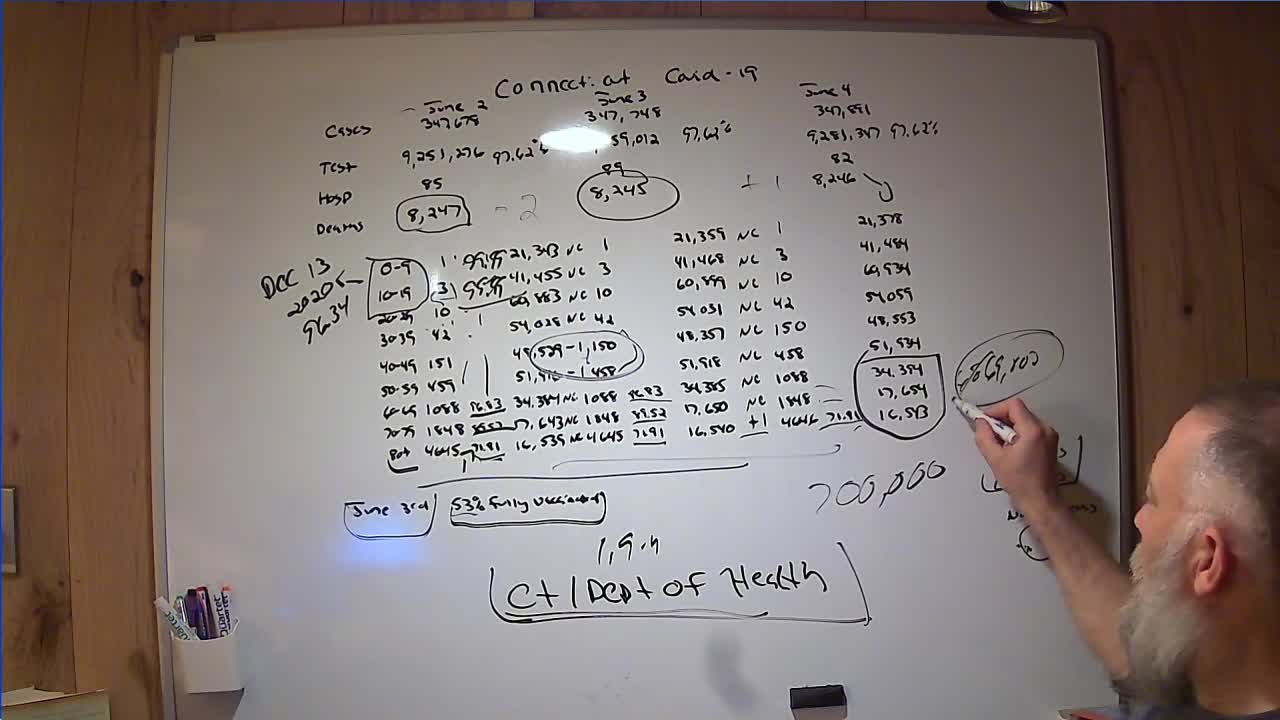 Connecticut Covid-19
June 2 June 3 June 4
Cases 347,678 347,748 347,891
Test 9,251,276 97.62% 59,012 97.62% 9,281,347 97.62%
Hosp 85 89 82
Deaths 8,247 -2 8,245 +1 8,246
0-9 1 99.99 21,343 NC 1 21,359 NC 1 21,378
10-19 3 99.99 41,455 NC 3 41,468 NC 3 41,484
20-29 10 60,883 NC 10 60,899 NC 10 60,934
30-39 42 54,028 NC 42 54,031 NC 42 54,059
40-49 151 -1,150 48,357 NC 150 48,553
50-59 459 -1 458 51,918 NC 458 51,934
60-69 1088 96.83 34,384 NC 1088 96.83 34,385 NC 1088 34,394
70-79 1848 17,643 NC 1848 89.52 17,650 NC 1848 17,654
80+ 4645 71.81 16,539 NC 4645 71.91 16,540 +1 4646 71.91 16,543
DEC 13
2020
9634
700,000
June 3rd 53% fully vaccinated
1,9
Ct / Dept of Health
Quartet